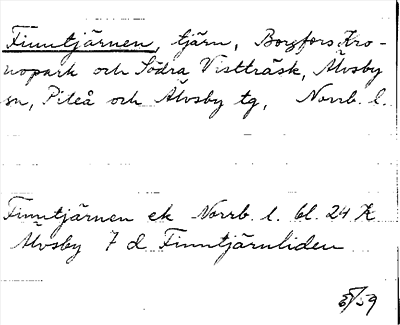 Finntjärnen, tjärn, Borgfors Kro-
nopark och Södra Vistträsk, Älvsby
sn, Piteå och Älvsby tg, Norrb. l.
Finntjärnen ek Norrb. l. bl. 24 K
Älvsby 7 d Finntjärnliden
/59